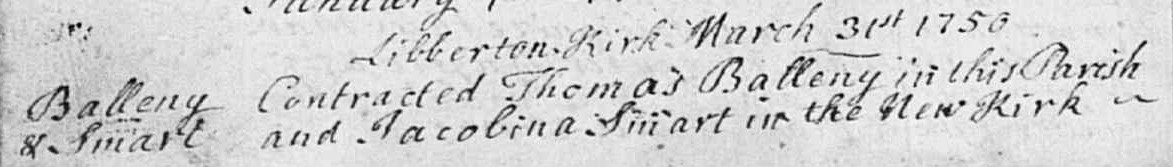 January
Libberton Kirk March 31st 1750
Balleny Contracted Thomas Balleny in this Parish
& Smart and Jacobina Smart in the New Kirk